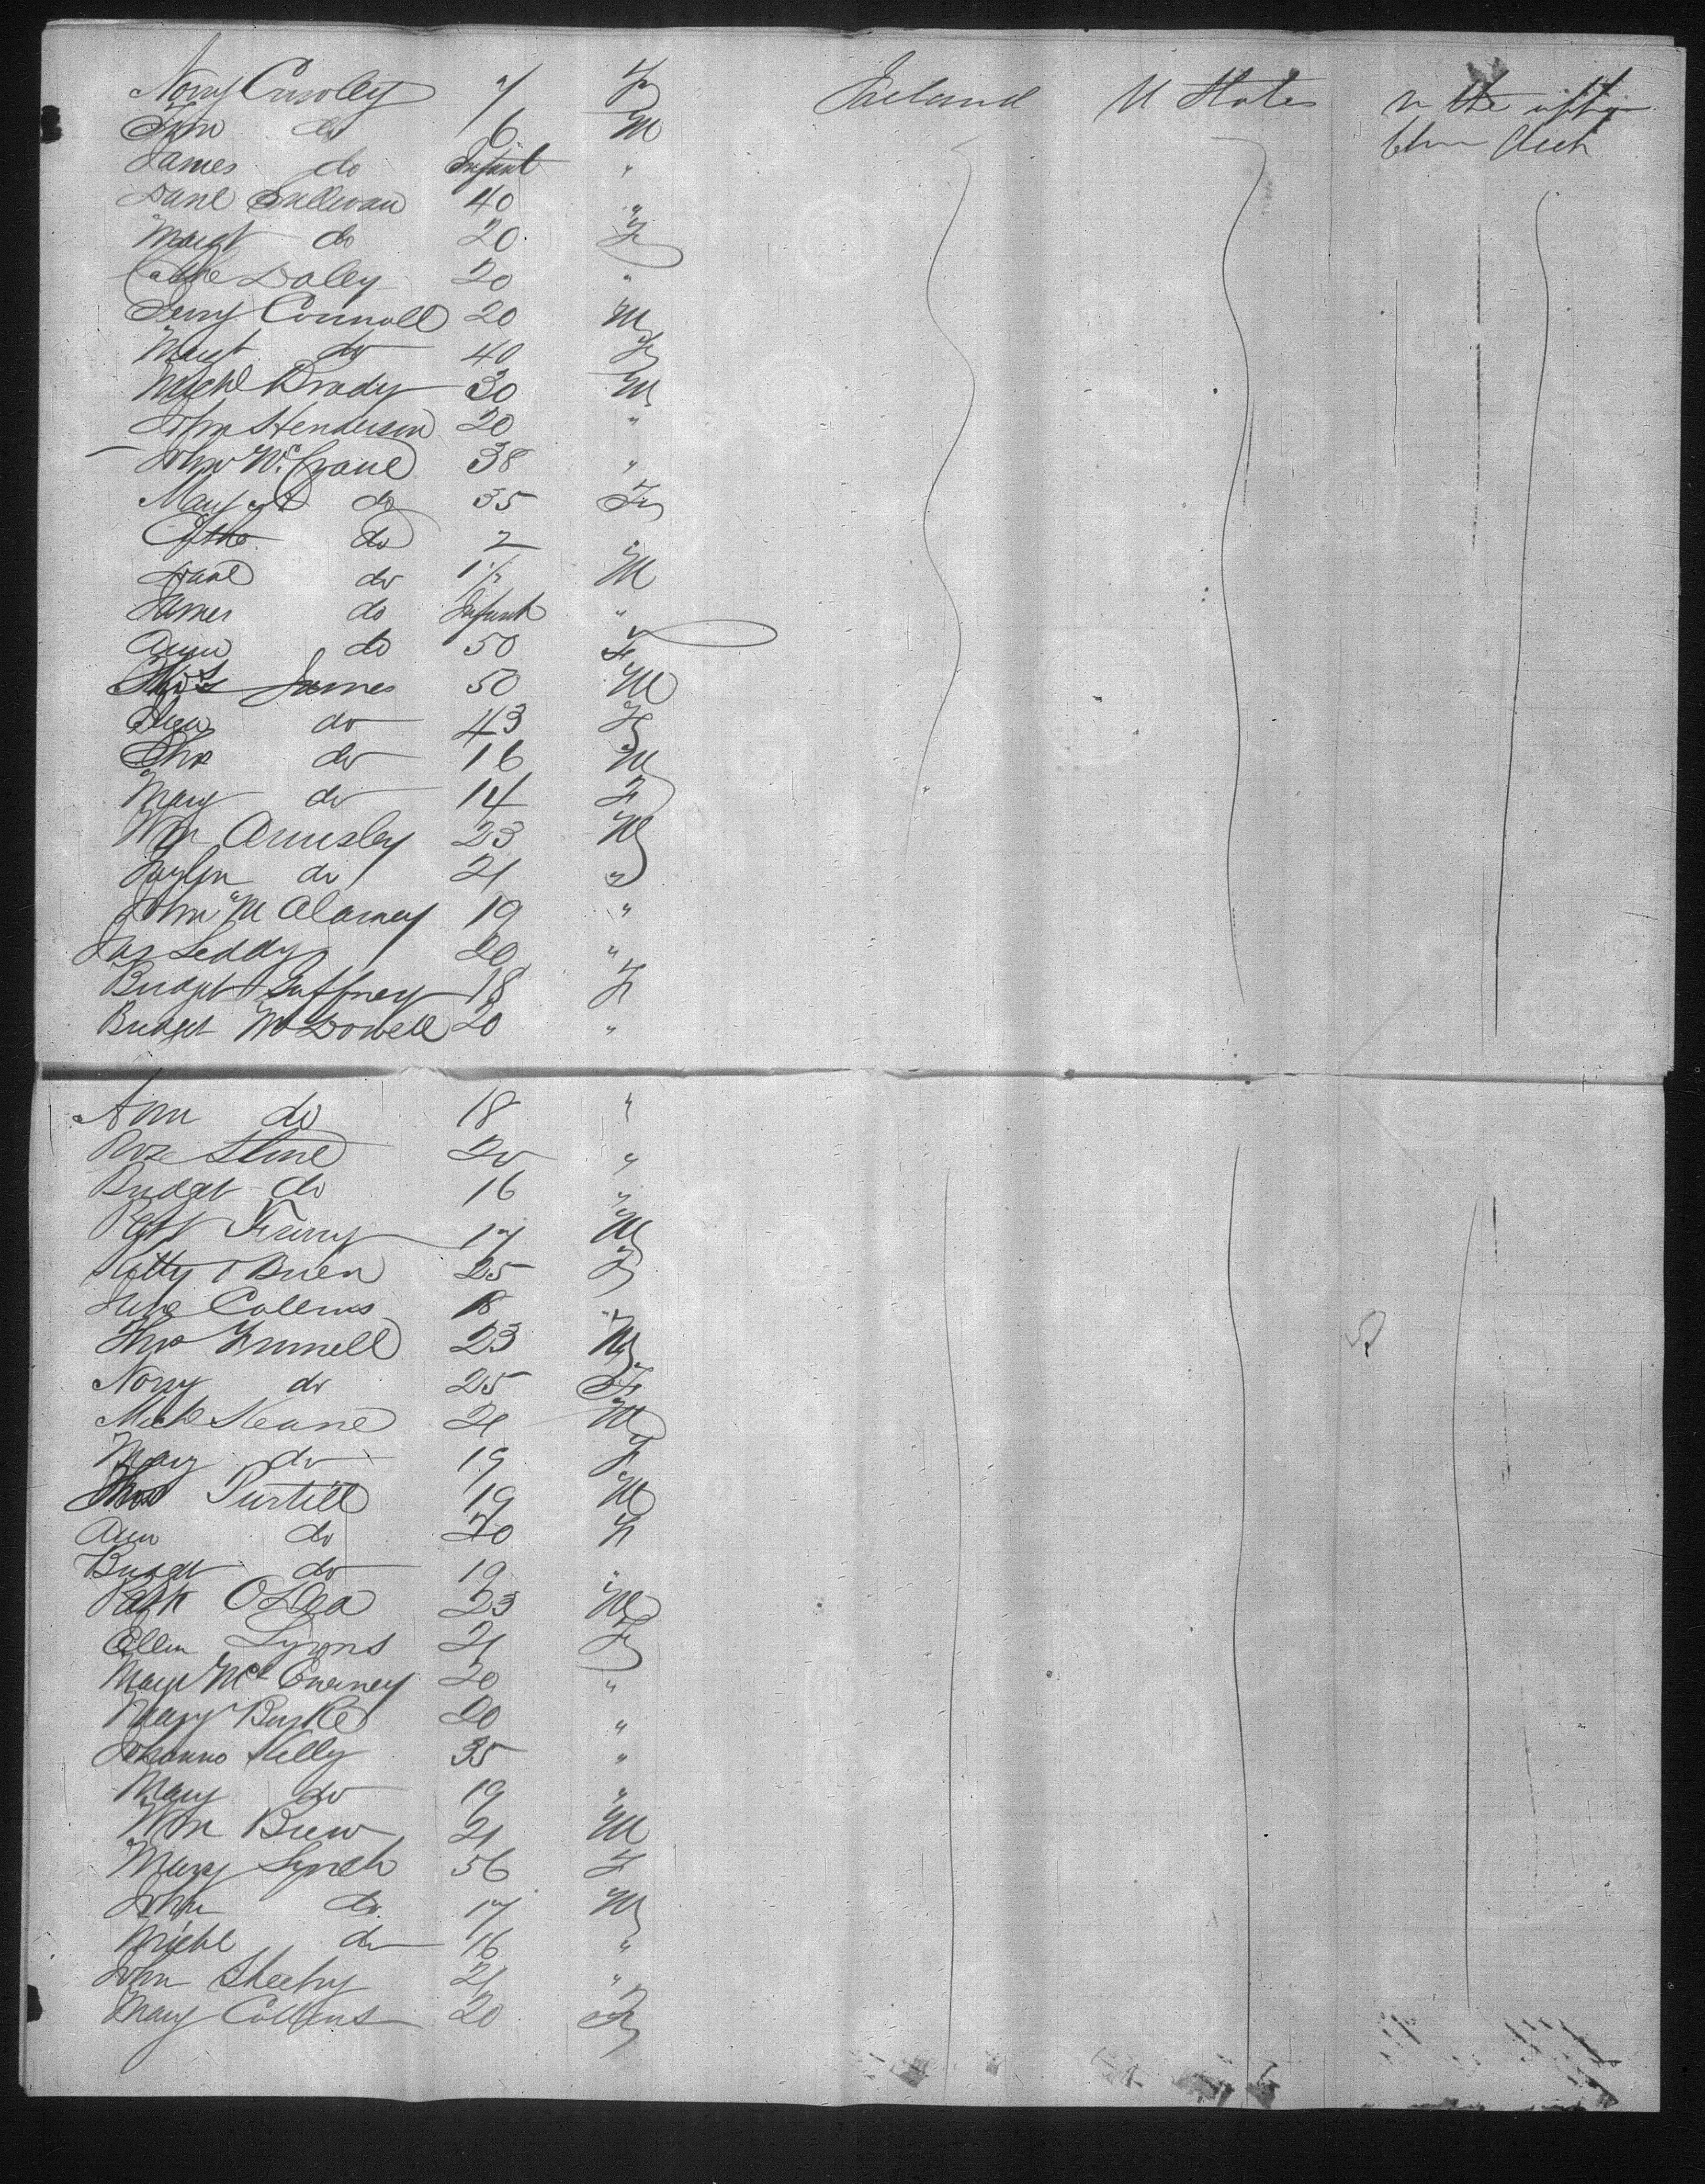 Nory Crowley 7 F Ireland U States In the after
Tim do 6 M betwn deck
James do Infant "
Danl Sullivan 40 "
Margt do 20 F
Cathe Daley 20 "
Jerry Connoll 20 M
Margt do 40 F
Michl Brady 30 M
John Henderson 20 "
John McGrane 38 "
Margt do 35 F
Cathe do 2 "
Danl do 1 1/2 M
James do Infant "
Ann do 50 F
Thos James 50 M
Eliza do 43 F
Thos do 16 M
Mary do 14 F
Wm Armsley 23 M
do 21 "
John McAlarney 19 "
Jas Leddy 20 "
Bridget Gaffney 18 F
Bridget McDowell 20 "
Ann do 18 "
Rose Slone 20 "
Bridget do 16 "
Patt 17 M
Kitty OBrien 25 F
Collins 18 "
Thos Funnell 23 M
Nory do 25 F
Michl Keane 21 M
Mary do 19 F
Thos Purtill 19 M
Ann do 20 F
Bridget do 19 "
Patk ODea 23 M
Ellen Lyons 21 F
Mary McEnerney 20 "
Mary Burke 20 "
Johanna Kelly 35 "
Mary do 19 "
Wm Brew 21 M
Mary Lynch 56 F
John do 17 M
Michl do 16 "
John Sheehy 21 "
Mary Collins 20 F